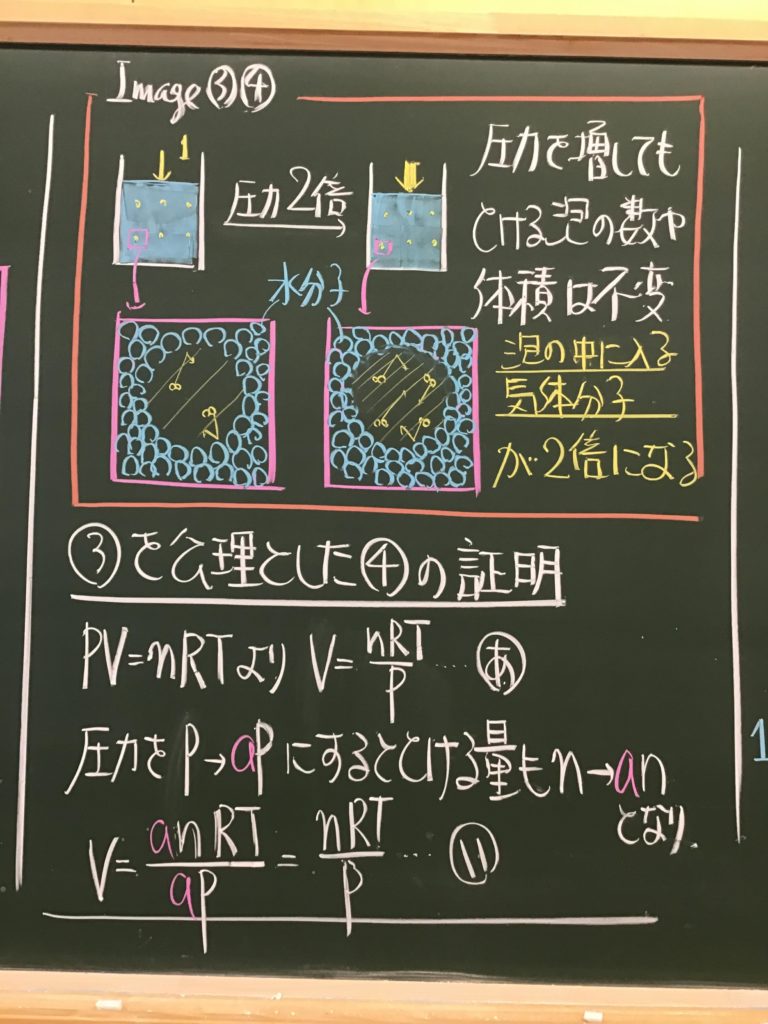 Image③④
1
圧力2倍
水分子
圧力を増しても
とける泡の数や
体積は不変
泡の中に入る
気体分子
が2倍になる
③を公理とした④の証明
PV=nRTより V=nRT/P ‥‥ あ
圧力をP→aPにするととける量もn→an
となり
V=anRT/aP=nRT/P ‥‥ い
1